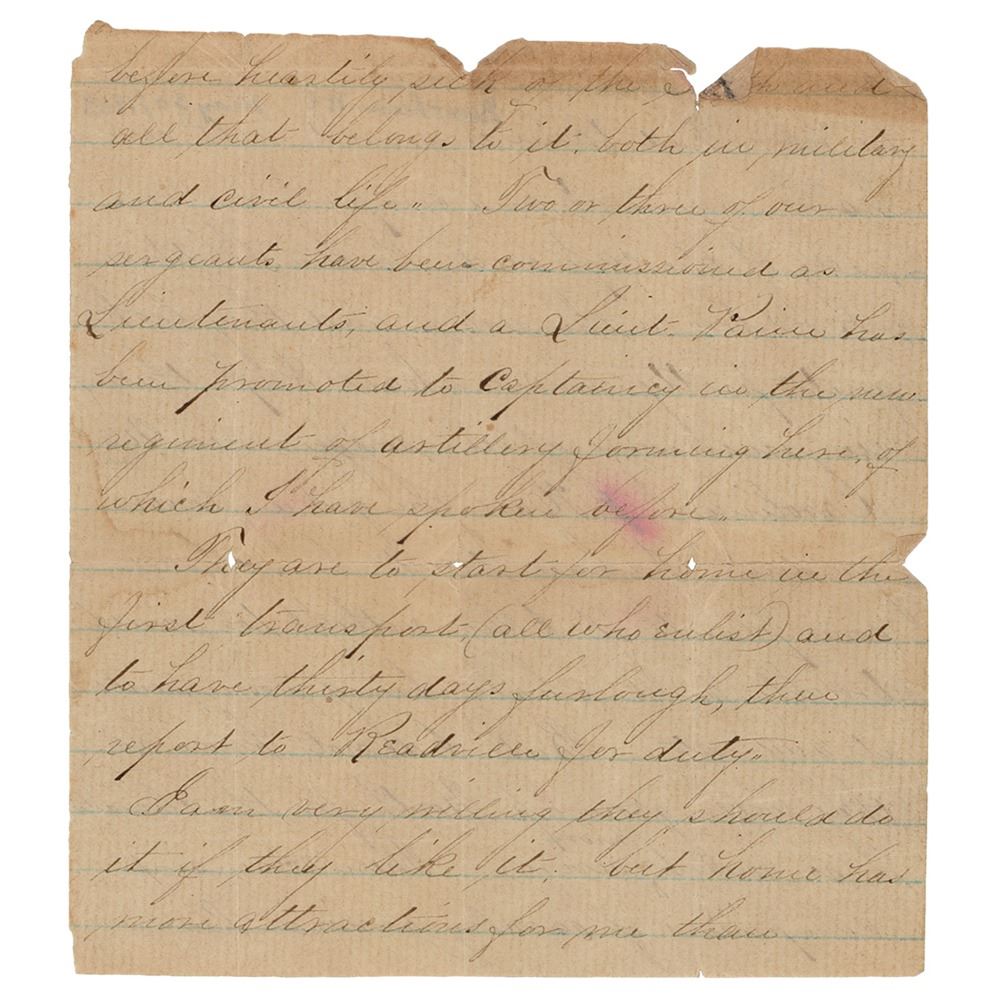 before heartily sick of the South and
all that belongs to it, both in military
and civil life." Two or three of our
sergeants have been commissioned as
Lieutenants, and a Lieut. Paine has
been promoted to Captaincy in the new
regiment of artillery forming here, of
which I have spoken before"
They are to start for home in the
first transport, (all who enlist) and
to have thirty days furlough, then
report to Readville for duty"
I am very willing they should do
it if they like it, but home has
more attractions for me than